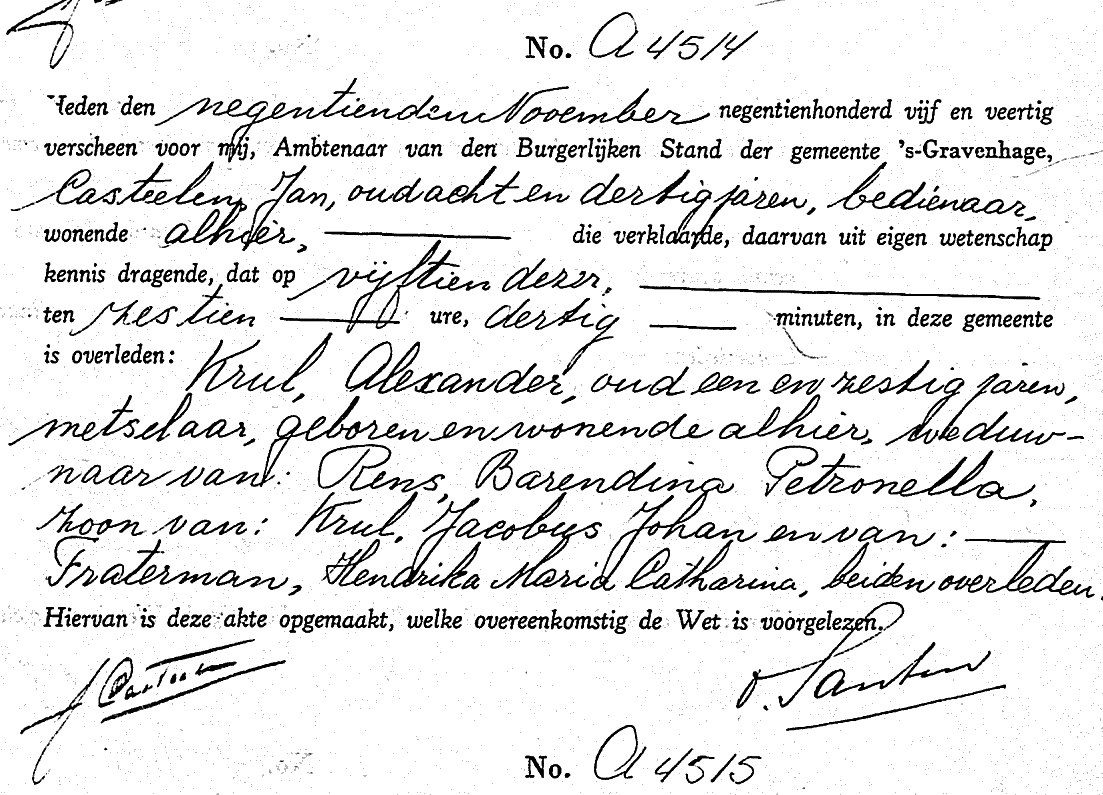 No. A 4514
Heden den negentienden November negentienhonderd vijf en veertig
verscheen voor mij, Ambtenaar van den Burgerlijken Stand der gemeente 's-Gravenhage,
Casteelen, Jan, oud acht en dertig jaren, bedienaar,
wonende alhier, die verklaarde, daarvan uit eigen wetenschap
kennis dragende, dat op vijftien dezer,
ten zestien ure, dertig minuten, in deze gemeente
is overleden:
Krul, Alexander, oud een en zestig jaren,
metselaar, geboren en wonende alhier, weduw-
naar van: Rens, Barendina Petronella,
zoon van: Krul, Jacobus Johan en van:
Fraterman, Hendrika Maria Catharina, beiden overleden.
Hiervan is deze akte opgemaakt, welke overeenkomstig de Wet is voorgelezen.
v. Santen
No. A 4515